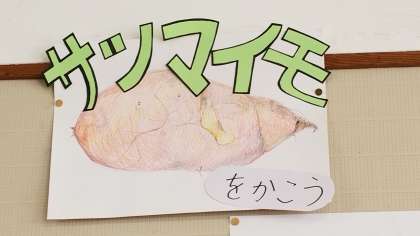 サツマイモ
をかこう